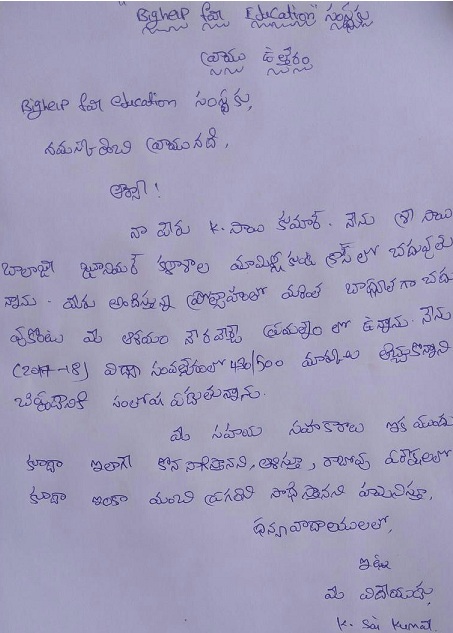 "Bighelp for Education" సంస్థకు
వ్రాయు ఉత్తరం
Bighelp for education సంస్థకు,
నమస్కరించి వ్రాయునది,
ఆర్యా!
నా పేరు K. సాయి కుమార్. నేను శ్రీ సాయి
బాలాజీ జూనియర్ కళాశాల లో చదువుతు
న్నాను. మీరు అందిస్తున్న ప్రోత్సాహంతో మరింత బాధ్యతగా చదు
వుకుంటు మీ ఆశయం నెరవేర్చే ప్రయత్నం లో ఉన్నాను. నేను
(2017-18) విద్యా సంవత్సరంలో /500 మార్కులు తెచ్చుకొన్నానని
సంతోష పడుతున్నాను.
మీ సహాయ సహకారాలు ఇక ముందు
కూడా ఇలాగే కొనసాగిస్తారని, ఆశిస్తూ, రాబోవు పరీక్షలలో
కూడా ఇంకా మంచి ప్రగతిని సాధిస్తానని హామినిస్తూ,
ధన్యవాదాలులతో,
ఇట్లు
మీ విధేయుడు,
K. Sai Kumar.